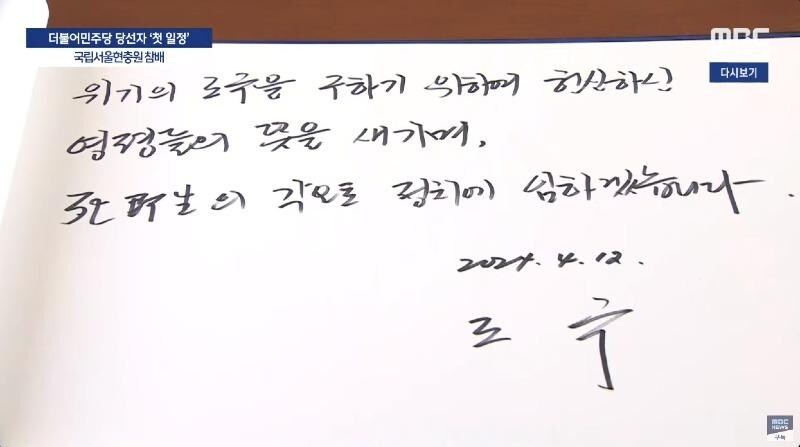 더불어민주당 당선자 '첫 일정'
국립서울현충원 참배
MBC
다시보기
위기의 조국을 구하기 위하여 헌신하신
영령들의 뜻을 새기며,
각오로 정치에 임하겠습니다.
2024. 4. 12.
조 국
MBC NEWS
구독